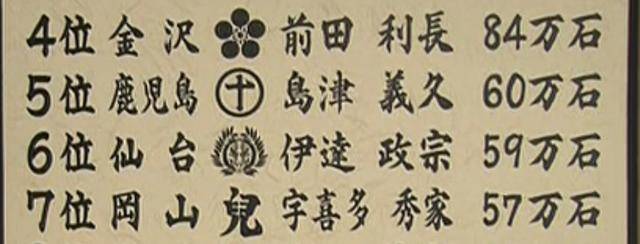 4位 金沢 前田 利長 84万石
5位 鹿児島 十 島津 義久 60万石
6位 仙台 伊達 政宗 59万石
7位 岡山 兒 宇喜多 秀家 57万石